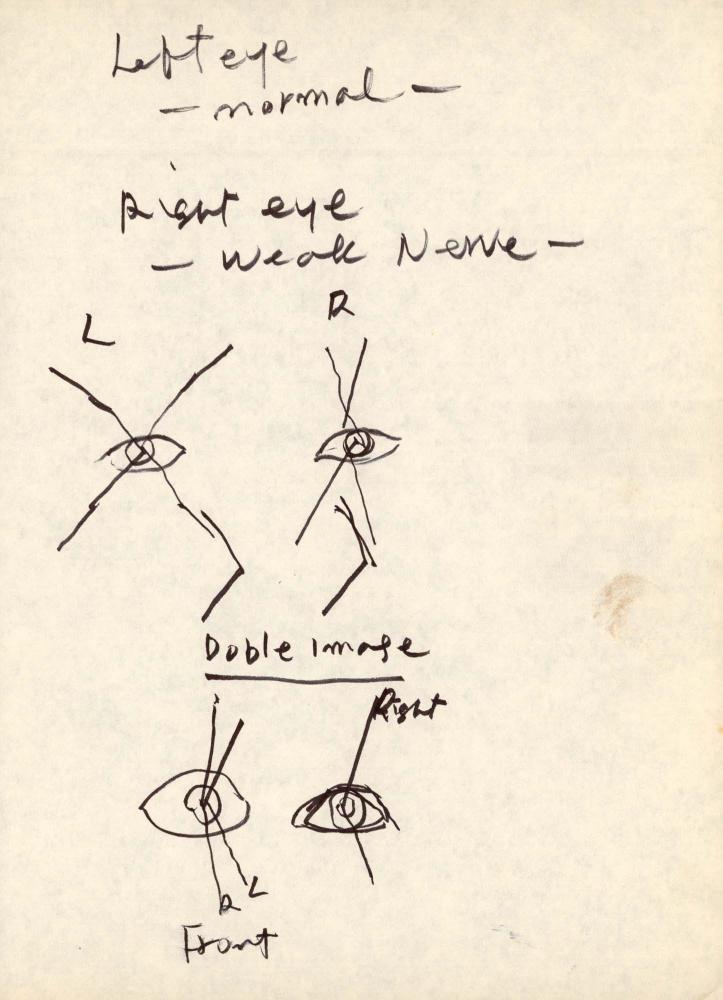 Left eye
- normal -
Right eye
- Weak Nerve -
L R
Doble Image
Right
R L
Front